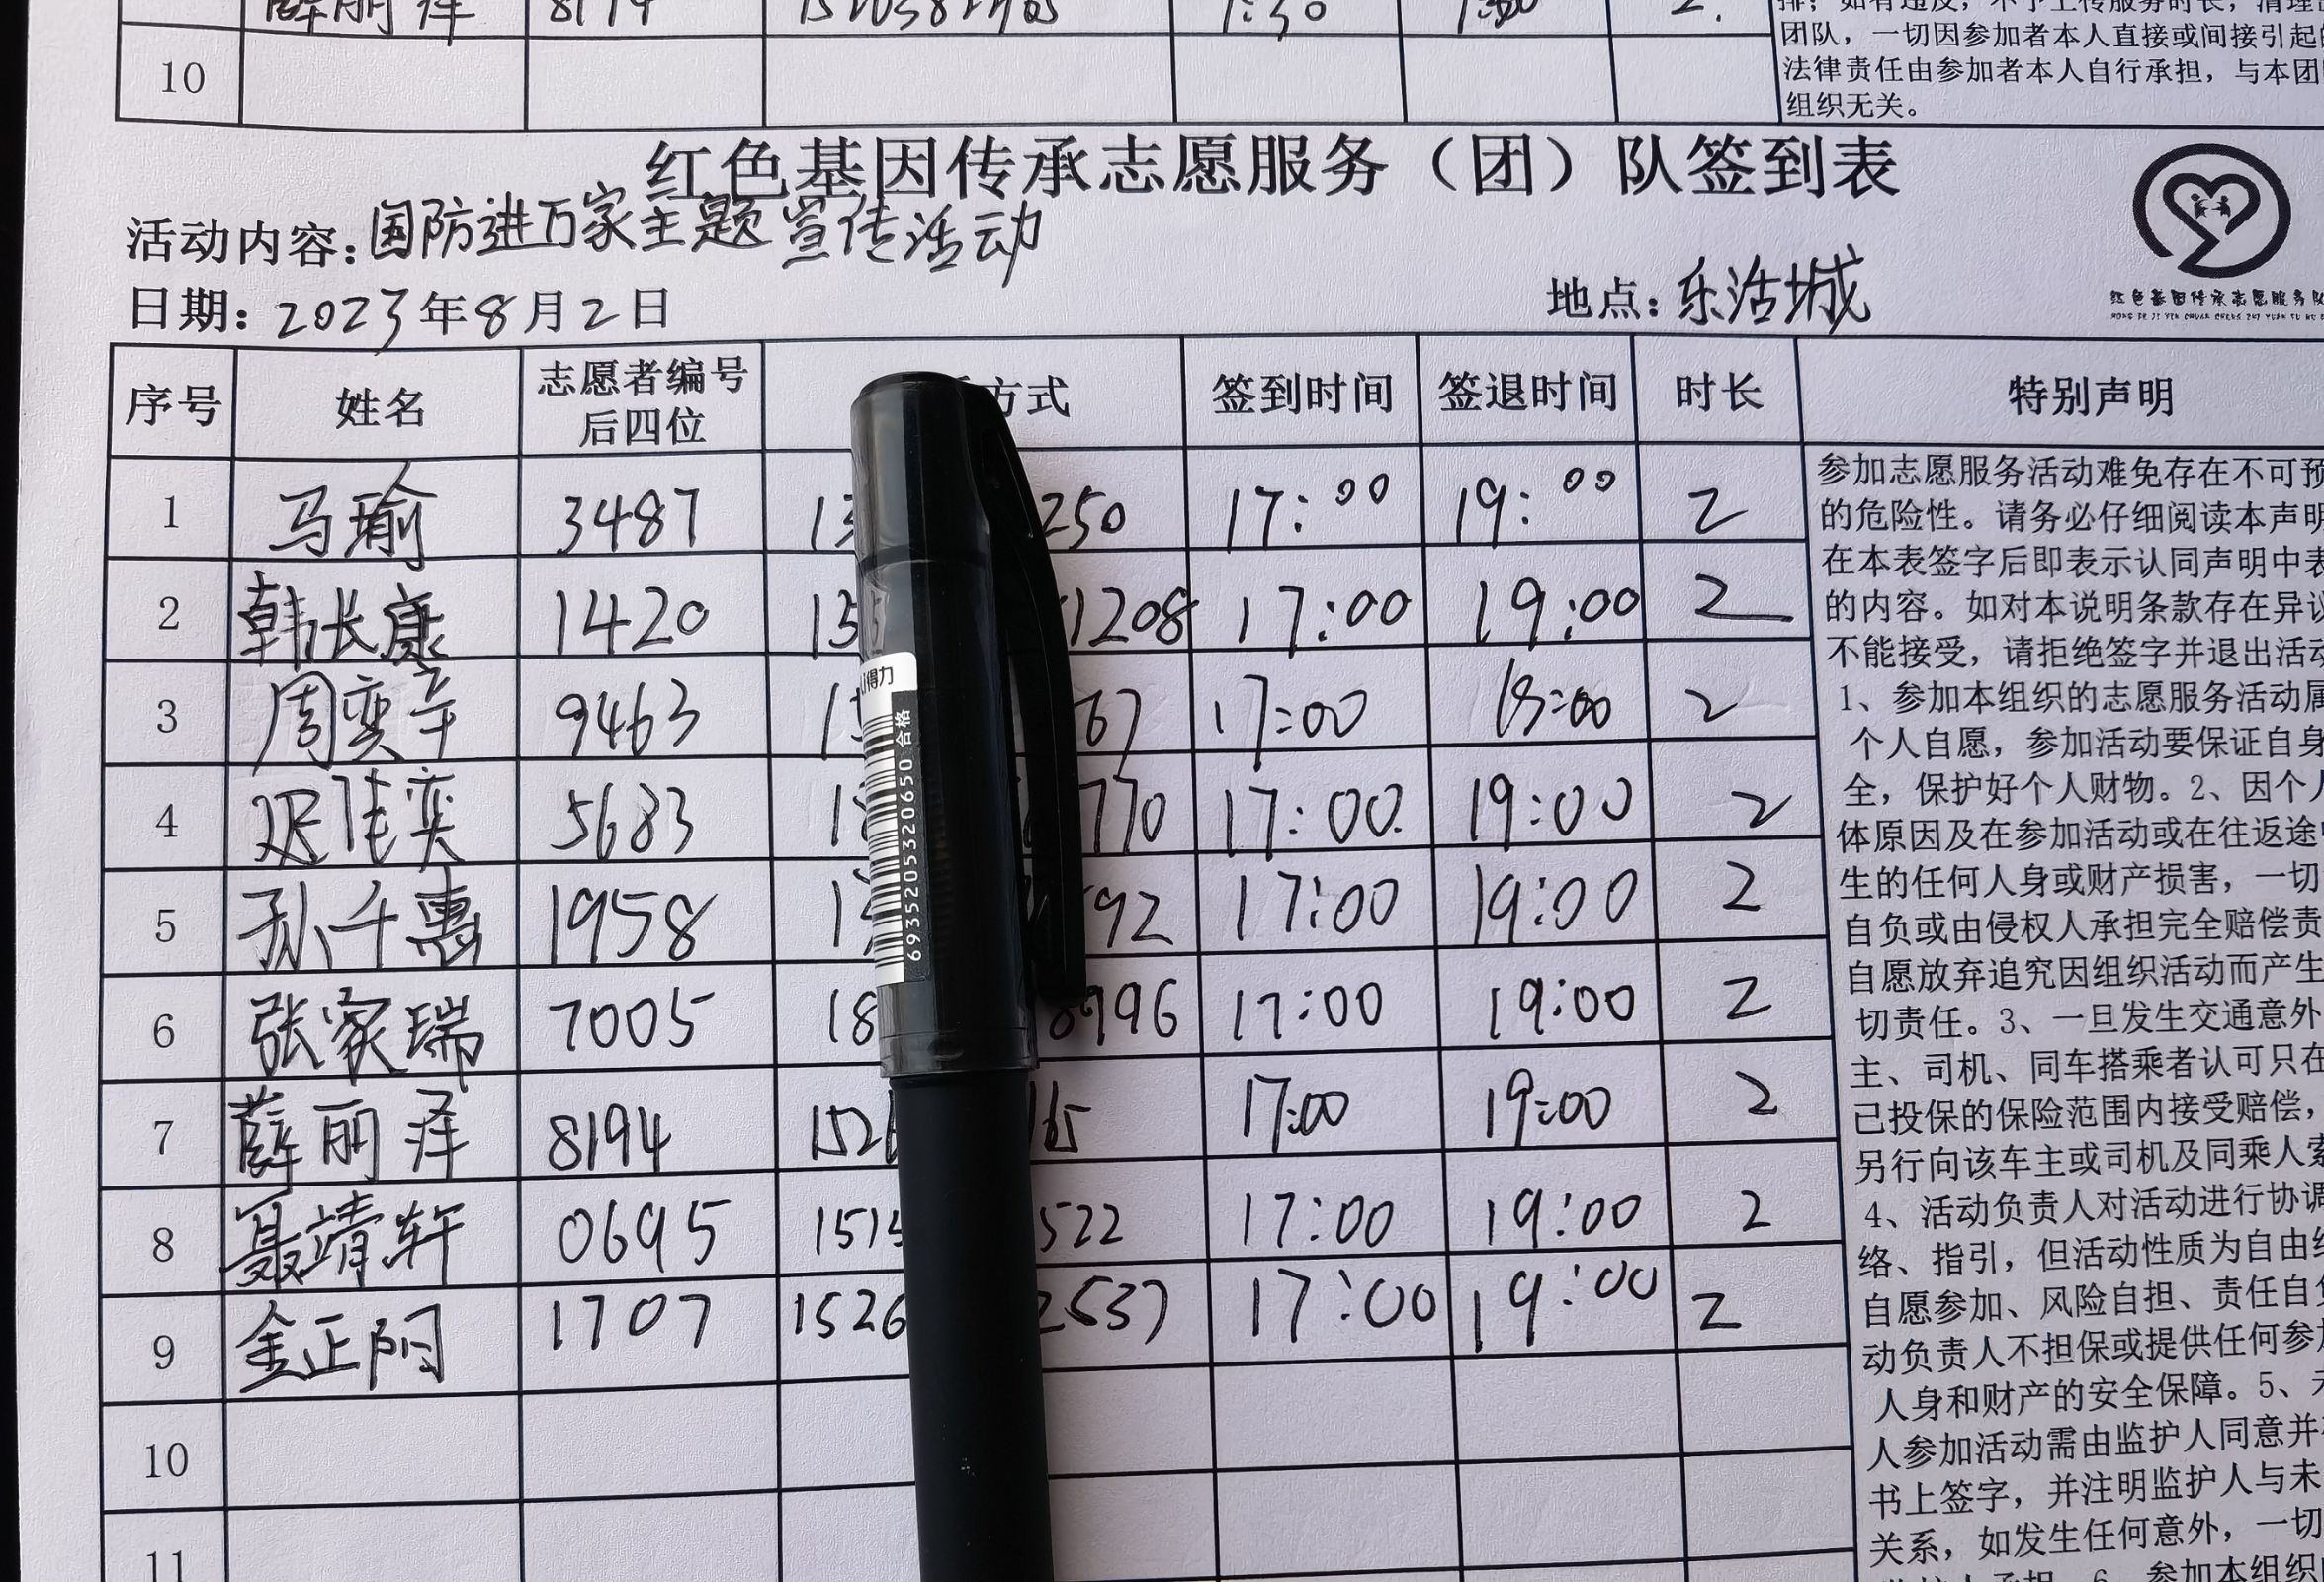 薛丽泽 8194
10
排；如有违反，不予上传服务时长，清理
团队，一切因参加者本人直接或间接引起
法律责任由参加者本人自行承担，与本团
组织无关。
红色基因传承志愿服务（团）队签到表
活动内容：国防进万家主题宣传活动
日期：2023年8月2日 地点：乐活城
红色基因传承志愿服务队
HONG SE JI YIN CHUAN CHENG ZHI YUAN FU WU
序号 姓名 志愿者编号后四位 方式 签到时间 签退时间 时长 特别声明
1 马瑜 3487 13 250 17:00 19:00 2
2 韩长康 1420 15 1208 17:00 19:00 2
3 周奕辛 9463 67 17:00 19:00 2
4 迟佳奕 5683 18 770 17:00 19:00 2
5 孙千惠 1958 92 17:00 19:00 2
6 张家瑞 7005 18 8996 17:00 19:00 2
7 薛丽泽 8194 1526 165 17:00 19:00 2
8 聂靖轩 0695 1515 522 17:00 19:00 2
9 金正阳 1707 1526 2537 17:00 19:00 2
10
11
参加志愿服务活动难免存在不可预
的危险性。请务必仔细阅读本声明
在本表签字后即表示认同声明中表
的内容。如对本说明条款存在异议
不能接受，请拒绝签字并退出活动
1、参加本组织的志愿服务活动属
个人自愿，参加活动要保证自身
全，保护好个人财物。2、因个人
体原因及在参加活动或在往返途
生的任何人身或财产损害，一切
自负或由侵权人承担完全赔偿责
自愿放弃追究因组织活动而产生
切责任。3、一旦发生交通意外
主、司机、同车搭乘者认可只在
已投保的保险范围内接受赔偿，
另行向该车主或司机及同乘人索
4、活动负责人对活动进行协调
络、指引，但活动性质为自由
自愿参加、风险自担、责任自负
动负责人不担保或提供任何参加
人身和财产的安全保障。5、
人参加活动需由监护人同意并
书上签字，并注明监护人与未
关系，如发生任何意外，一切
监护人承担。6、参加本组织
得力
合格
6935205320650